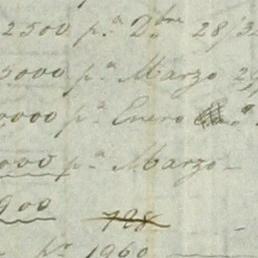 2500 p.ª D.bre 28/3
5000 p.ª Marzo 29
0000 p.ª Enero
000 p.ª Marzo -
900 728 -
- pr 1960